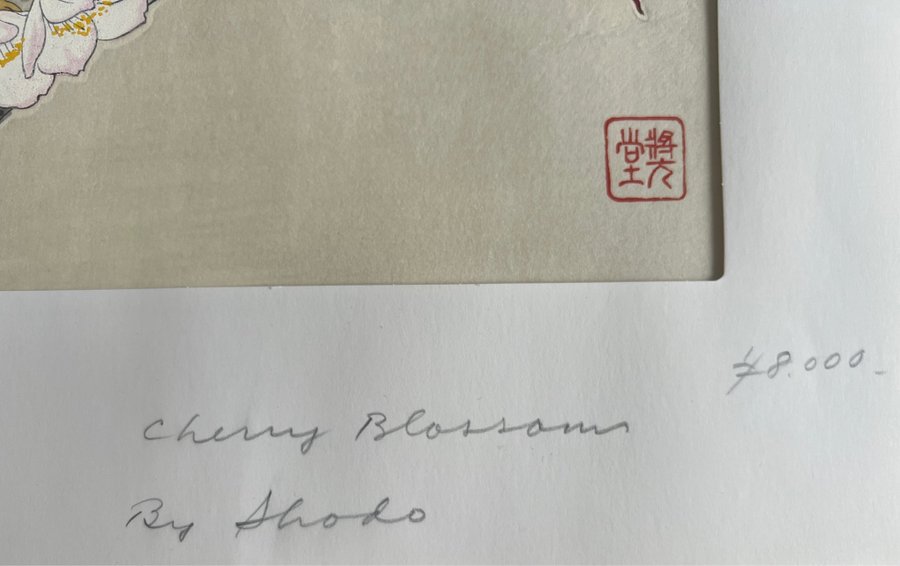 奨堂
¥8.000-
Cherry Blossoms
By Shodo